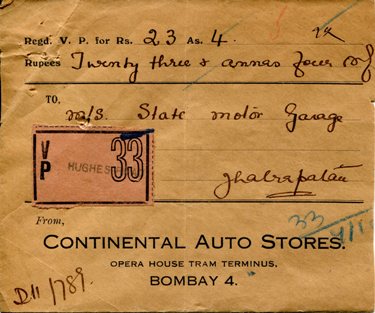 Regd. V. P. for Rs. 23 As. 4.
Rupees Twenty three & annas four only
TO,
M/s. State motor Garage
Jhalrapatan
V P HUGHES 33
33
From,
CONTINENTAL AUTO STORES.
OPERA HOUSE TRAM TERMINUS,
BOMBAY 4.
D11/789.